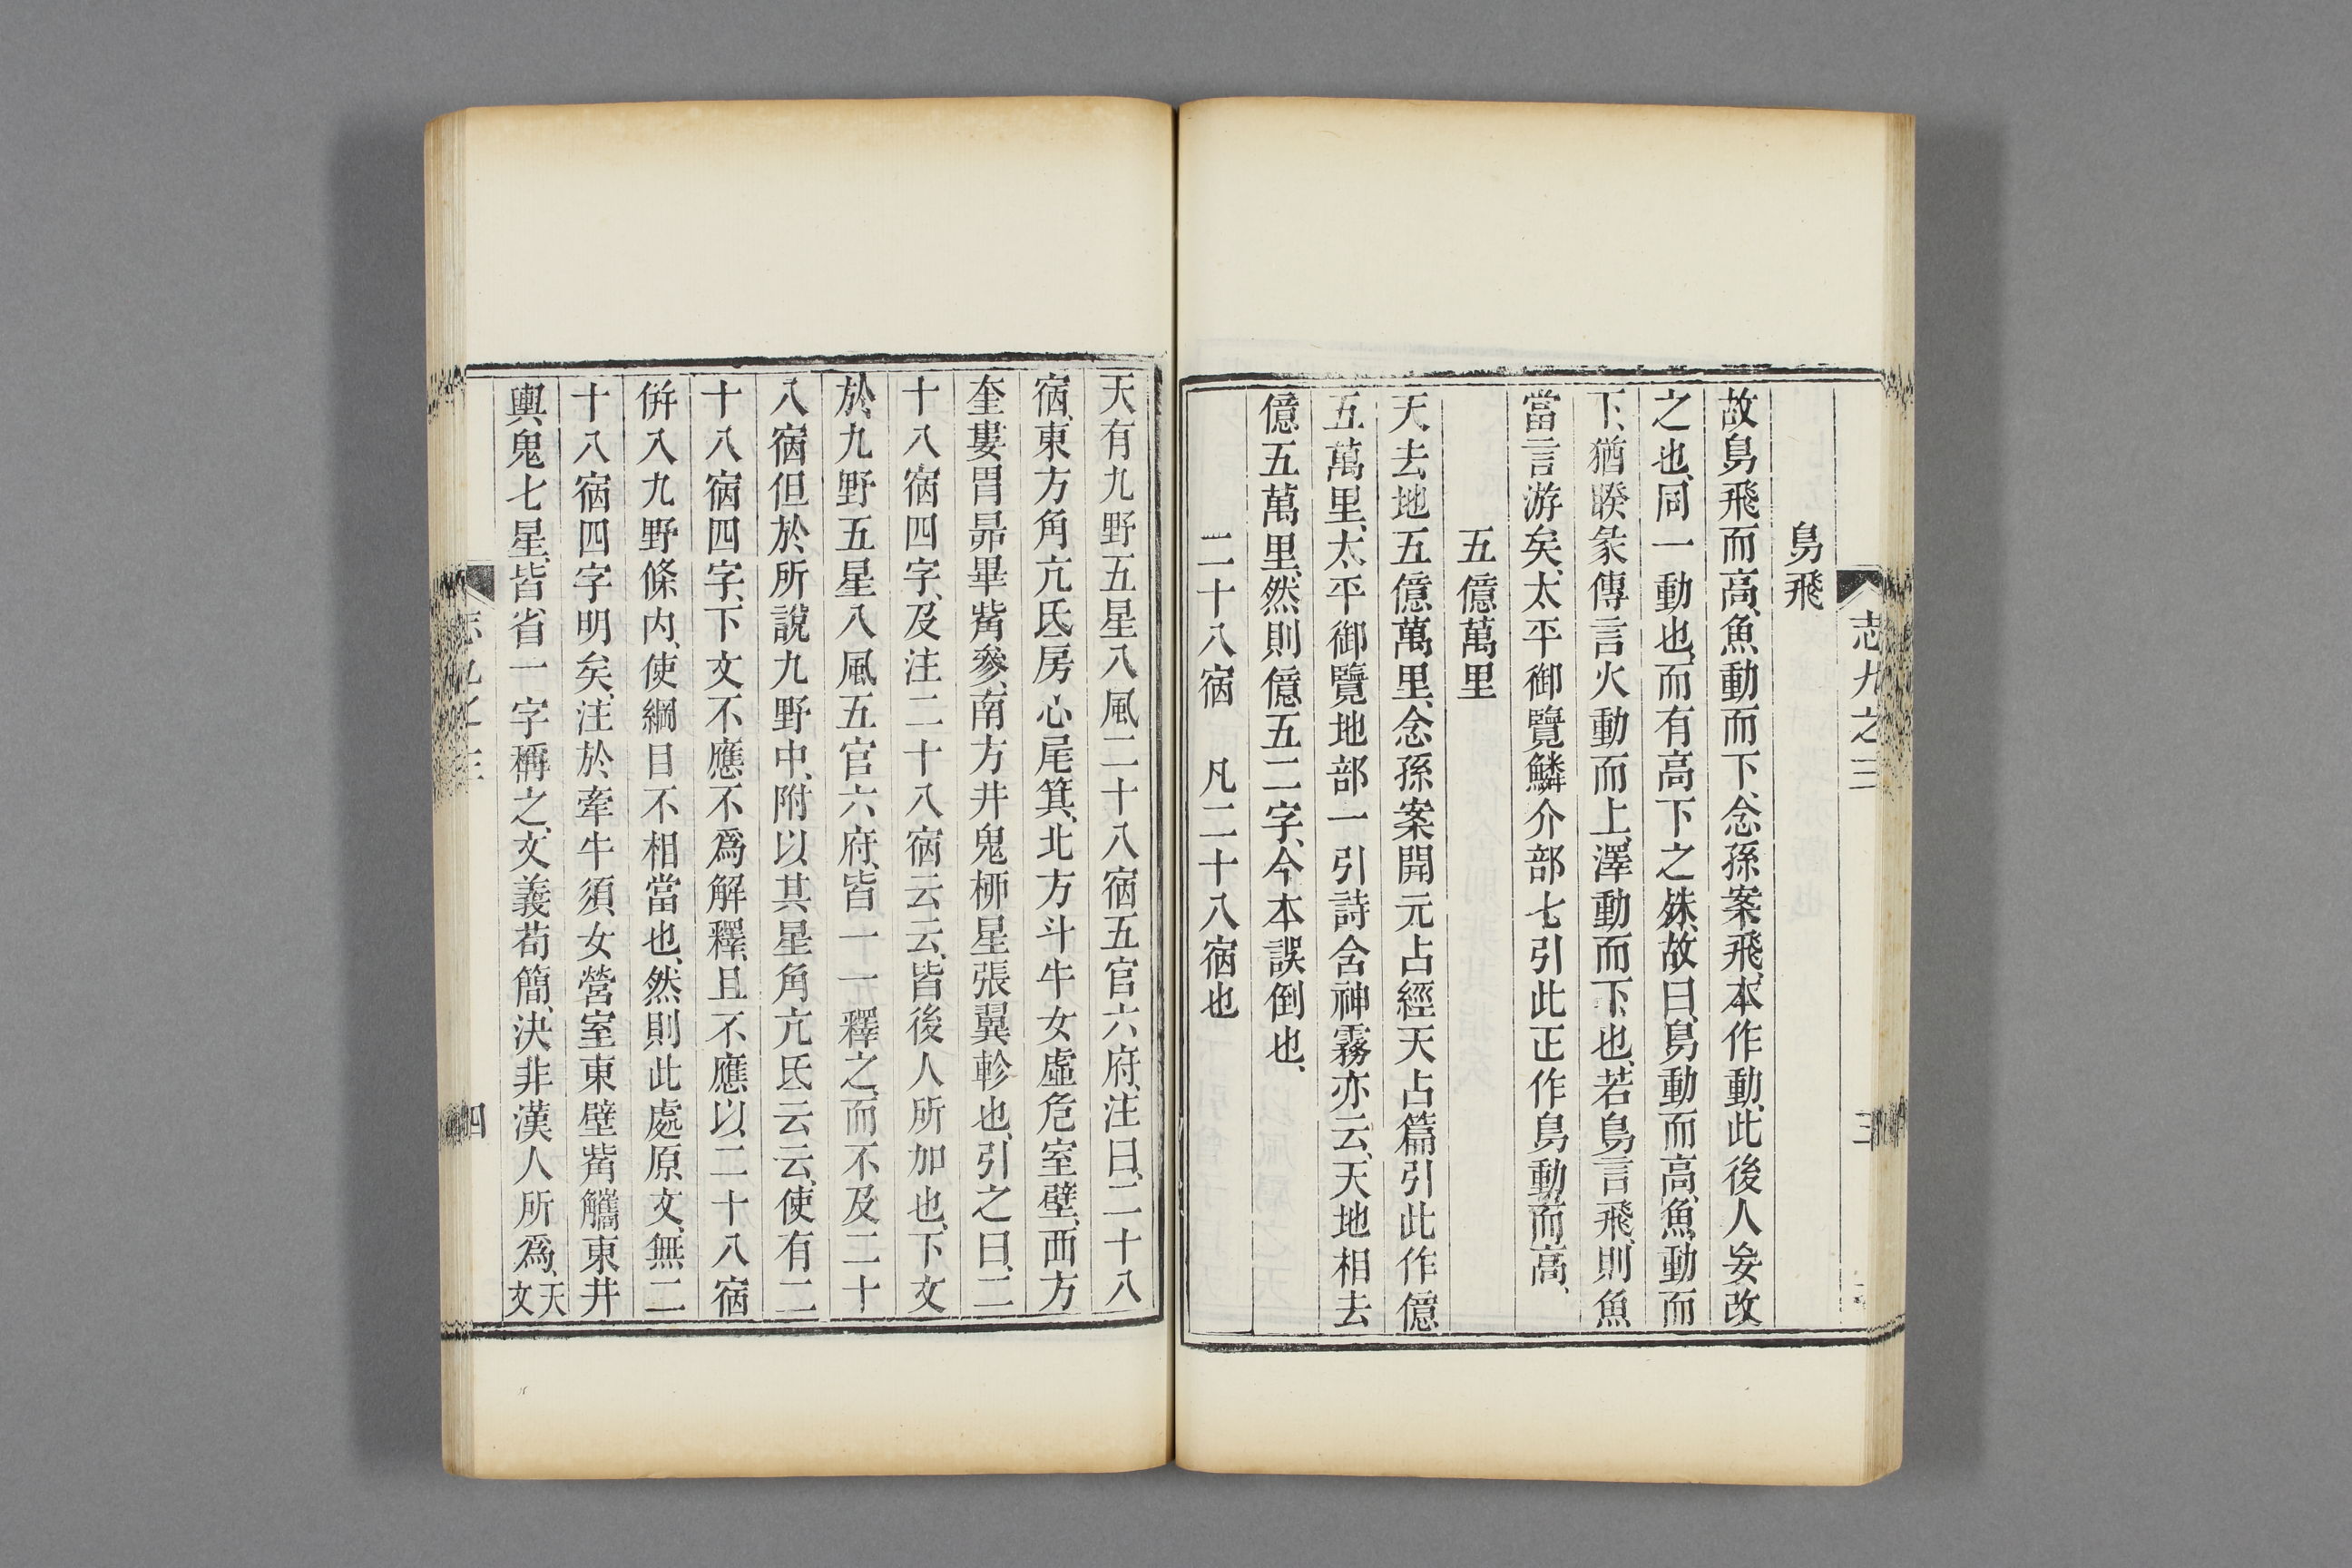 志九之三
三
鳥飛
故鳥飛而高、魚動而下、念孫案、飛、本作動、此後人妄改
之也、同一動也、而有高下之殊、故曰、鳥動而高、魚動而
下、猶睽彖傳言火動而上、澤動而下也、若鳥言飛、則魚
當言游矣、太平御覽鱗介部七引此正作鳥動而高、
五億萬里
天去地五億萬里、念孫案開元占經天占篇引此作億
五萬里、太平御覽地部一引詩含神霧亦云、天地相去
億五萬里、然則億五二字、今本誤倒也、
二十八宿　凡二十八宿也
天有九野五星八風二十八宿五官六府、注曰、二十八
宿、東方角亢氐房心尾箕、北方斗牛女虛危室壁、西方
奎婁胃昴畢觜參、南方井鬼柳星張翼軫也、引之曰、二
十八宿四字、及注二十八宿云云、皆後人所加也、下文
於九野五星八風五官六府、皆一一釋之、而不及二十
八宿但於所說九野中、附以其星角亢氐云云、使有二
十八宿四字、下文不應不爲解釋、且不應以二十八宿
併入九野條內、使綱目不相當也、然則此處原文、無二
十八宿四字明矣、注於牽牛須女營室東壁觜觿東井
輿鬼七星、皆省一字稱之、文義苟簡、決非漢人所爲、天
文
志九之三
四